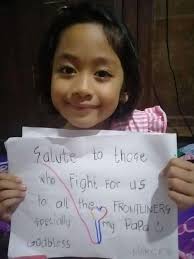 Salute to those
who Fight for us
to all the FRONTLINERS
specially my Papa
Godbless